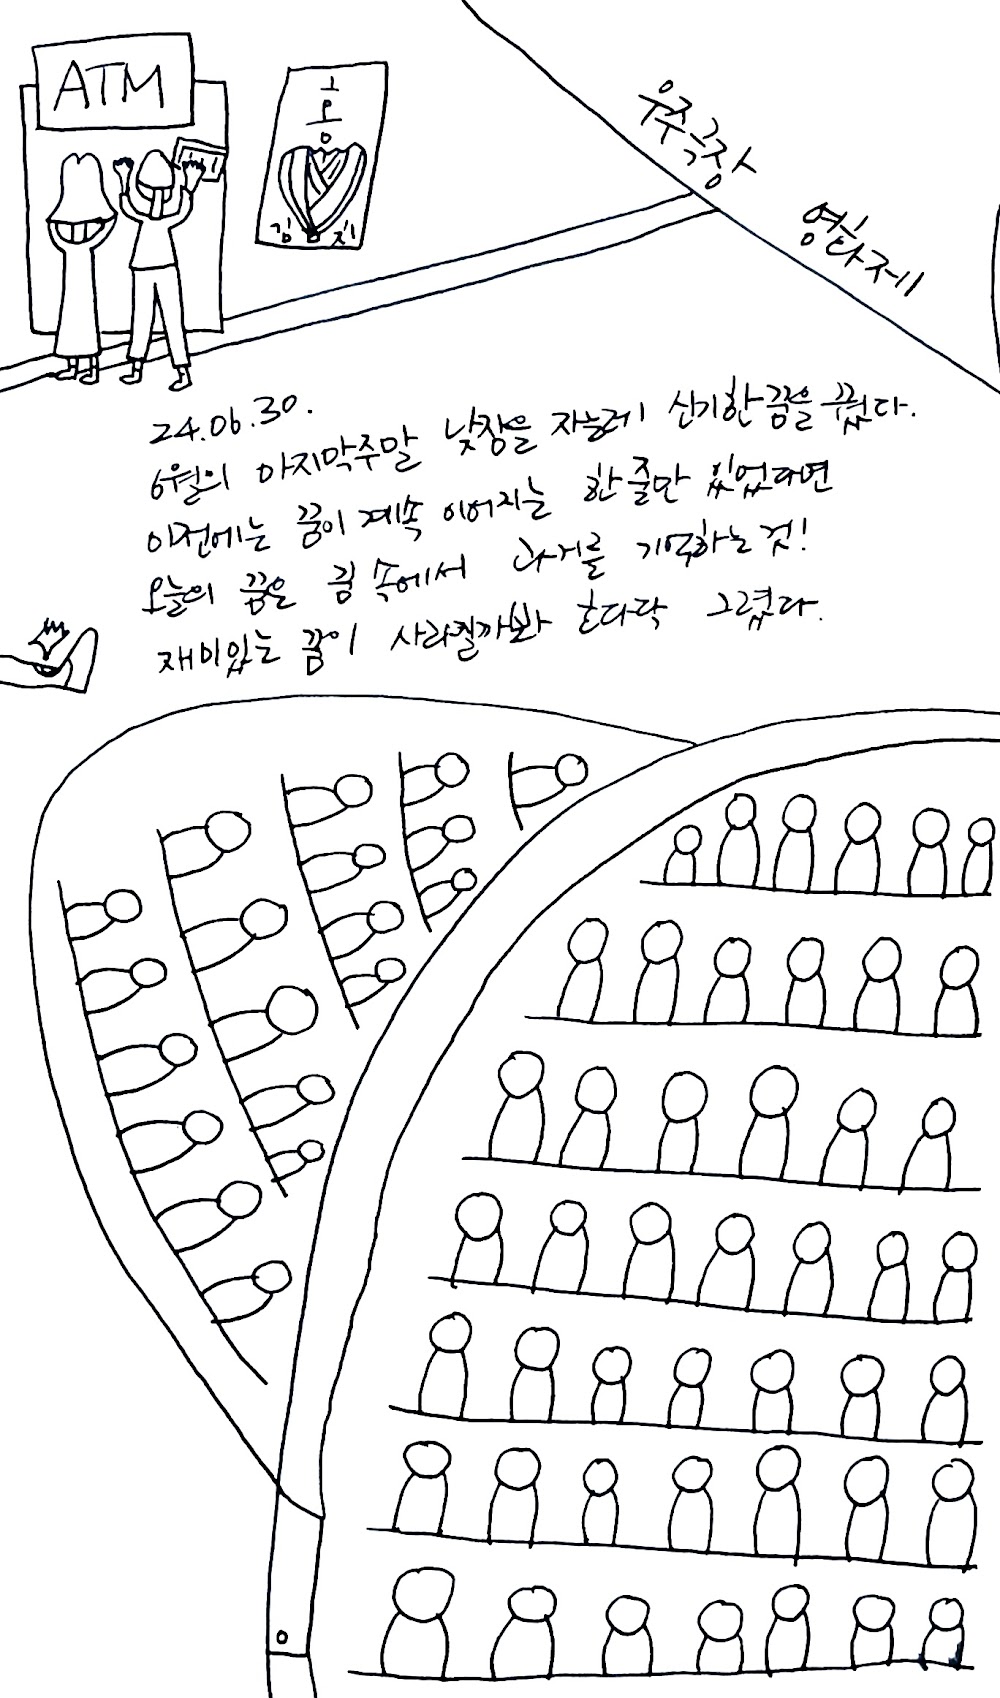 ATM
고흥
김 제
우주극장
영화제
24.06.30.
6월의 마지막주말 낮잠을 자는데 신기한 꿈을 꾸었다.
이전에는 꿈이 계속 이어지는 한 줄만 있었다면
오늘의 꿈은 꿈 속에서 과거를 기억하는 것!
재미있는 꿈이 사라질까봐 후다닥 그렸다.